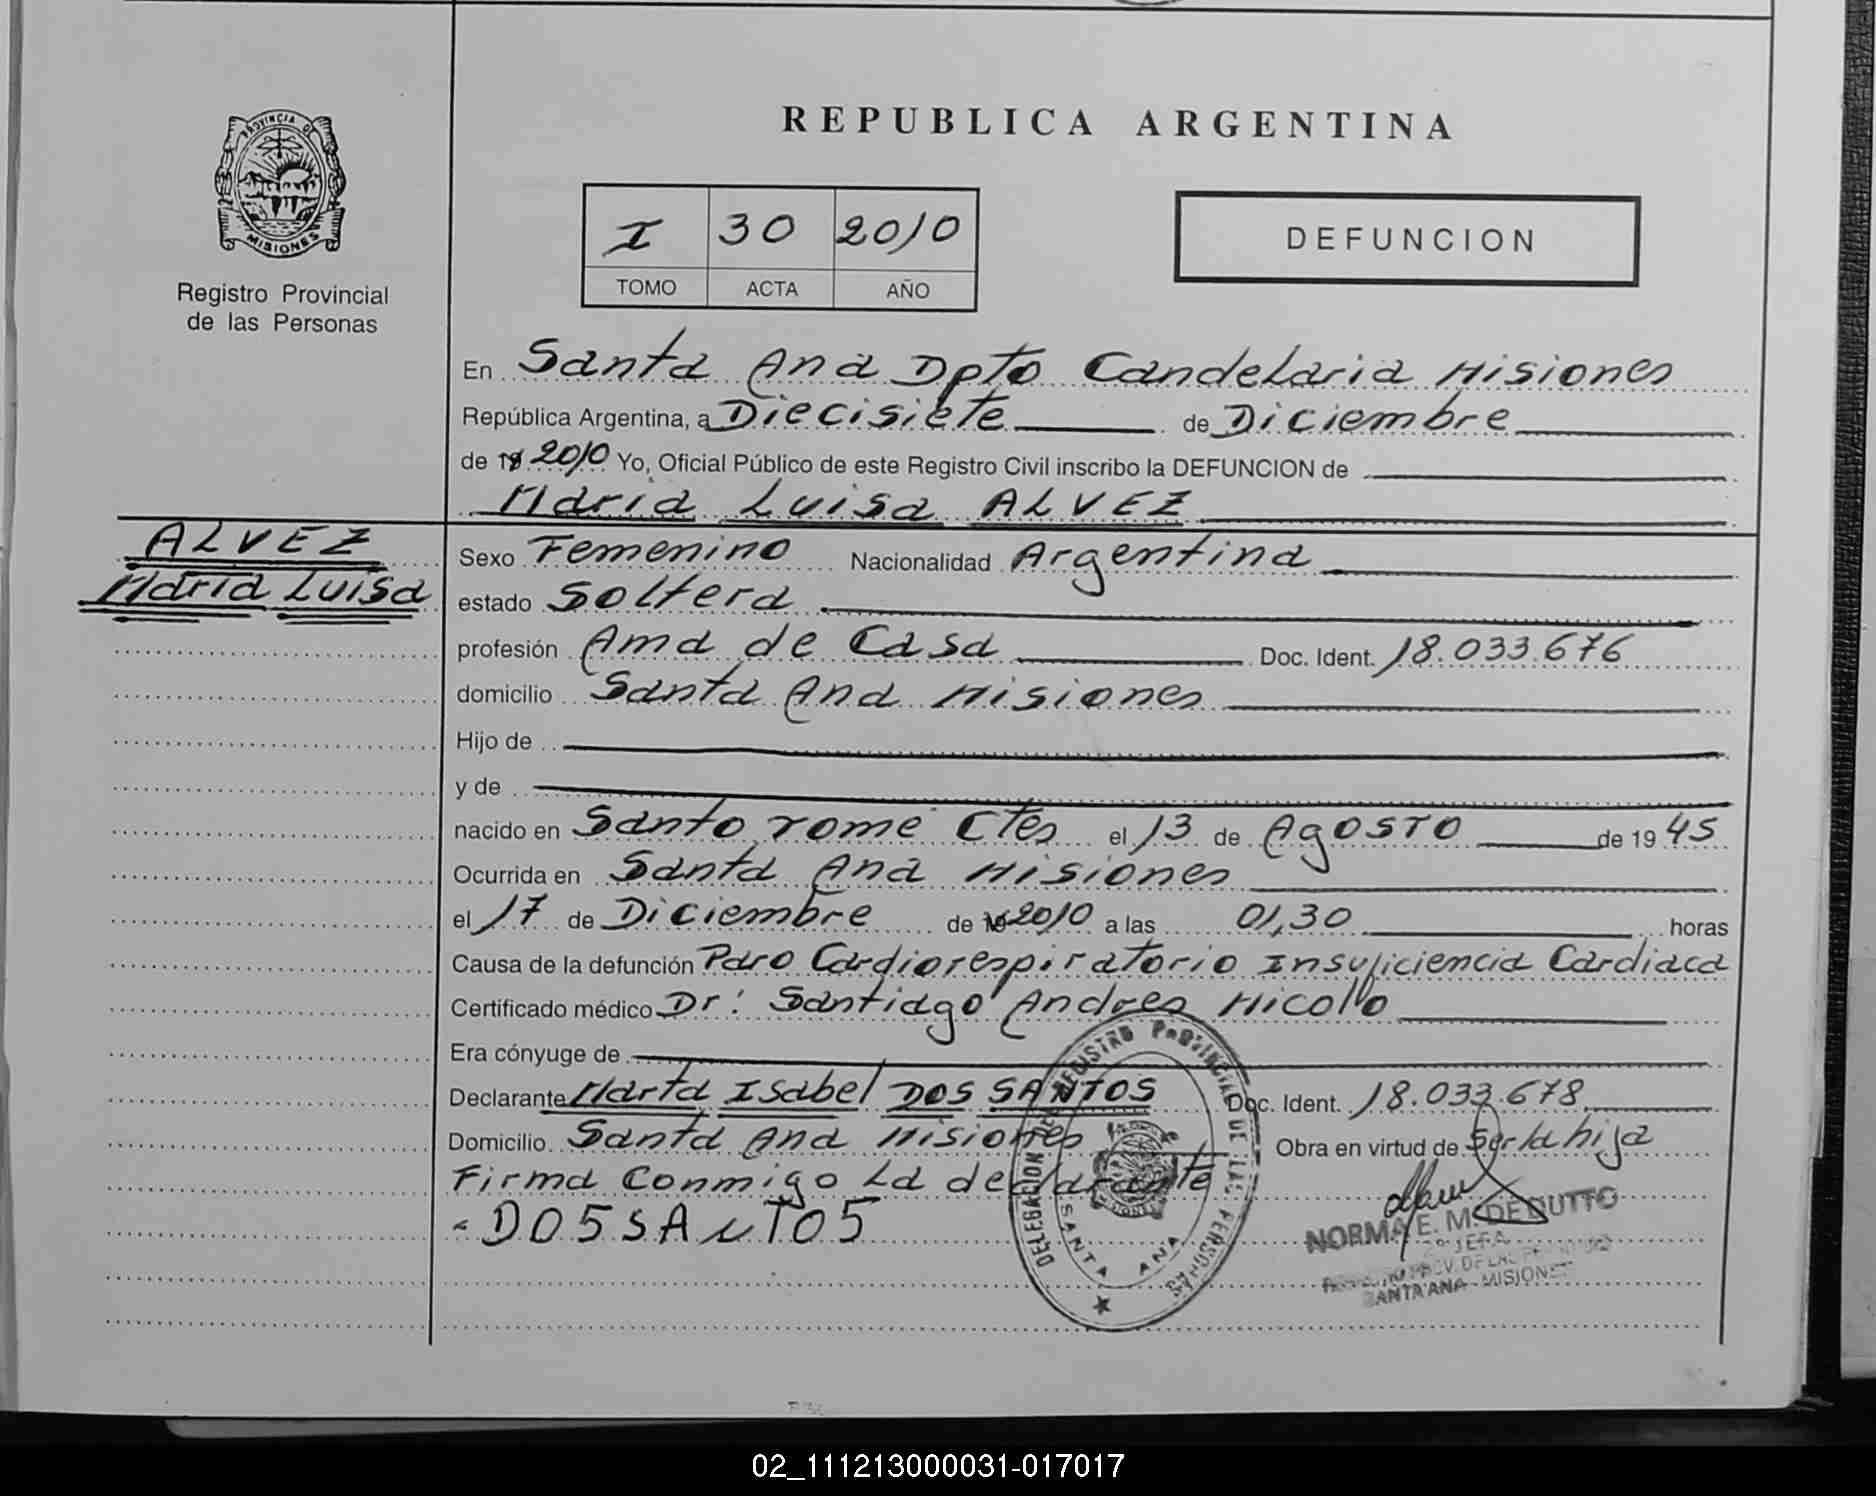 PROVINCIA DE
MISIONES
Registro Provincial
de las Personas
REPUBLICA ARGENTINA
I 30 2010
TOMO ACTA AÑO
DEFUNCION
En Santa Ana Dpto Candelaria Misiones
República Argentina, a Diecisiete de Diciembre
de 19 2010 Yo, Oficial Público de este Registro Civil inscribo la DEFUNCION de
Maria Luisa ALVEZ
ALVEZ
Maria Luisa
Sexo Femenino Nacionalidad Argentina
estado Soltera
profesión Ama de Casa Doc. Ident. 18.033.676
domicilio Santa Ana Misiones
Hijo de
y de
nacido en Santo Tome Ctes el 13 de Agosto de 19 45
Ocurrida en Santa Ana Misiones
el 17 de Diciembre de 19 2010 a las 01,30 horas
Causa de la defunción Paro Cardiorespiratorio Insuficiencia Cardiaca
Certificado médico Dr: Santiago Andres Micolo
Era cónyuge de
Declarante Marta Isabel DOS SANTOS Doc. Ident. 18.033.678
Domicilio Santa Ana Misiones Obra en virtud de Ser la hija
Firma Conmigo La declarante
DOSSANTOS
DELEGACION REGISTRO PROVINCIAL DE LAS PERSONAS
SANTA ANA
NORMA E. M. DE DUTTO
JEFA
SANTA ANA - MISIONES
02_111213000031-017017